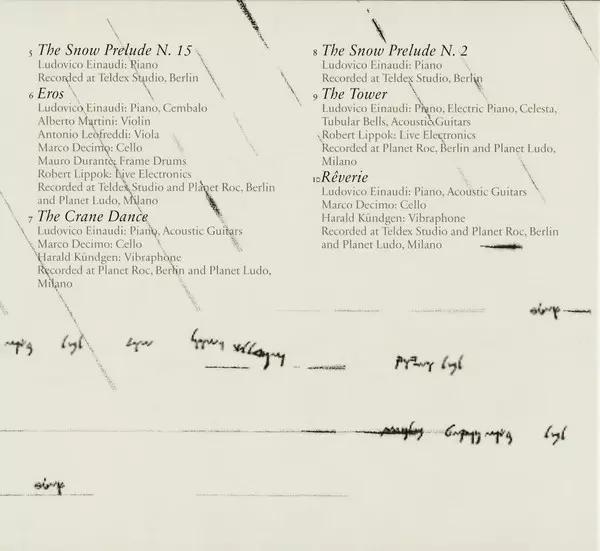 5 The Snow Prelude N. 15
Ludovico Einaudi: Piano
Recorded at Teldex Studio, Berlin
6 Eros
Ludovico Einaudi: Piano, Cembalo
Alberto Martini: Violin
Antonio Leofreddi: Viola
Marco Decimo: Cello
Mauro Durante: Frame Drums
Robert Lippok: Live Electronics
Recorded at Teldex Studio and Planet Roc, Berlin
and Planet Ludo, Milano
7 The Crane Dance
Ludovico Einaudi: Piano, Acoustic Guitars
Marco Decimo: Cello
Harald Kündgen: Vibraphone
Recorded at Planet Roc, Berlin and Planet Ludo,
Milano
8 The Snow Prelude N. 2
Ludovico Einaudi: Piano
Recorded at Teldex Studio, Berlin
9 The Tower
Ludovico Einaudi: Piano, Electric Piano, Celesta,
Tubular Bells, Acoustic Guitars
Robert Lippok: Live Electronics
Recorded at Planet Roc, Berlin and Planet Ludo,
Milano
10 Rêverie
Ludovico Einaudi: Piano, Acoustic Guitars
Marco Decimo: Cello
Harald Kündgen: Vibraphone
Recorded at Teldex Studio and Planet Roc, Berlin
and Planet Ludo, Milano